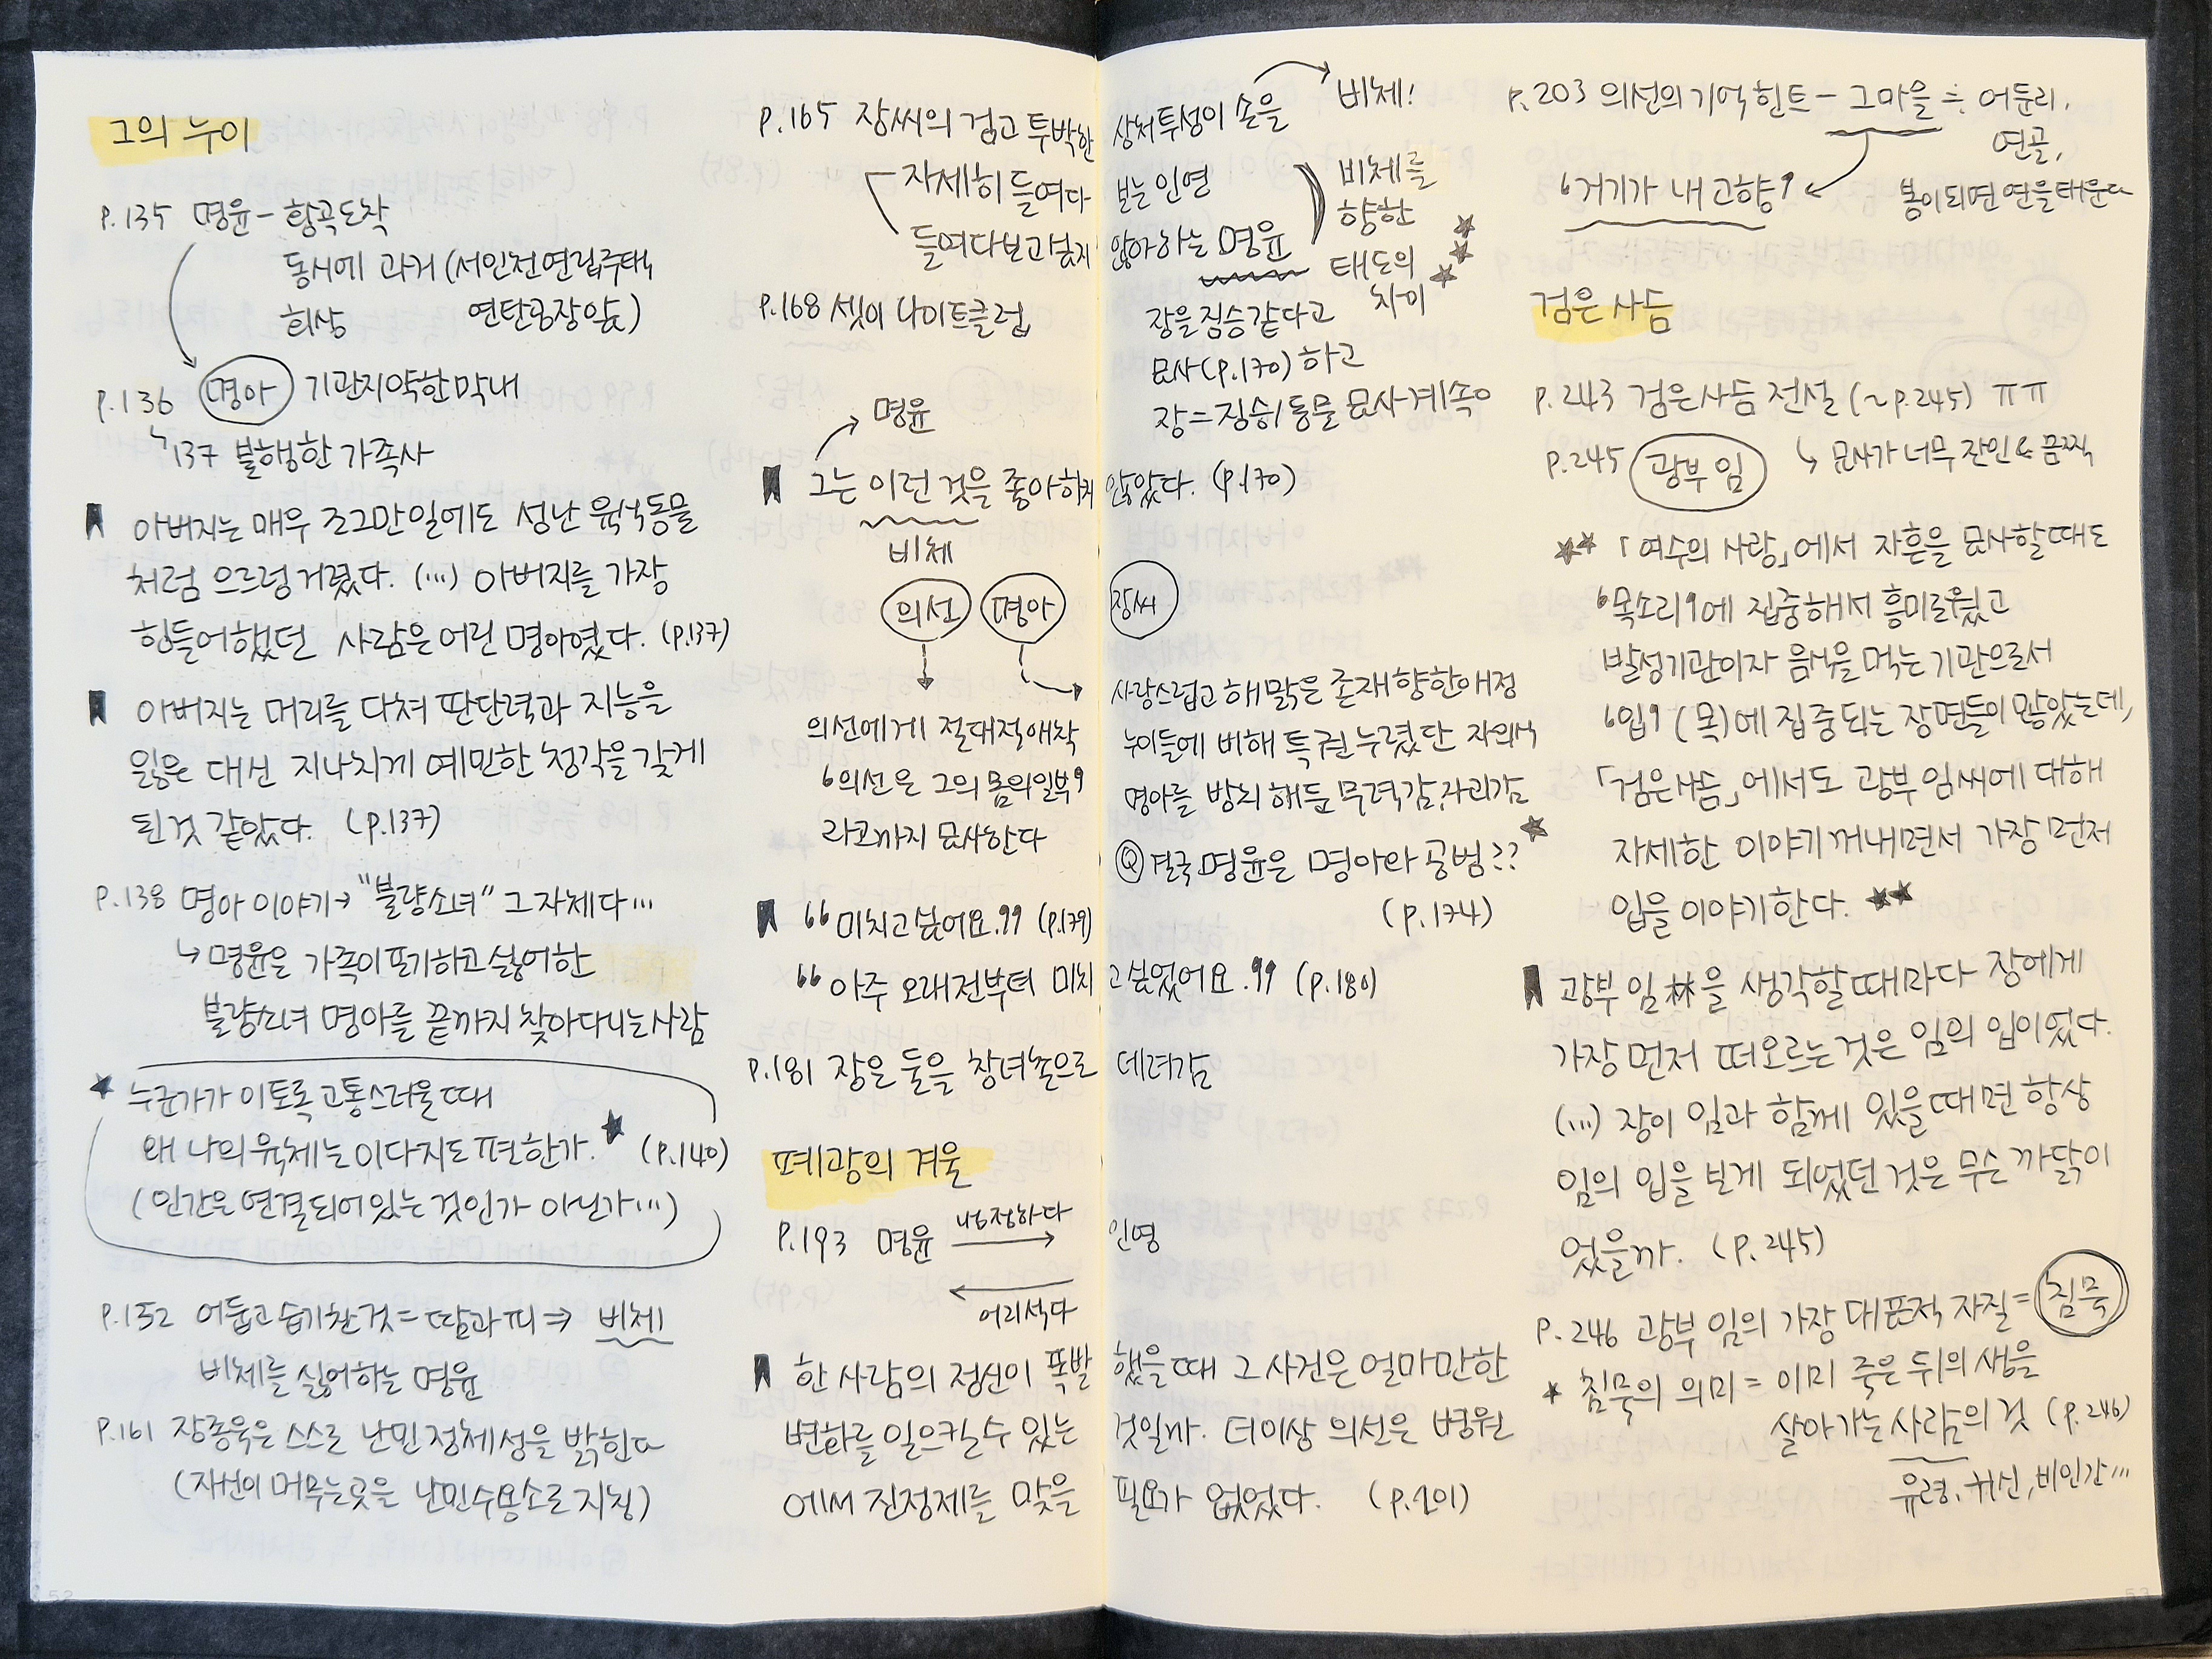 그의 누이
P.135 명윤 - 황곡도착
동시에 과거 (서인천 연립주택,
회상 연탄공장 앞)
P.136 명아 기관지 약한 막내
↳137 불행한 가족사
아버지는 매우 조그만 일에도 성난 육식동물
처럼 으르렁거렸다. (...) 아버지를 가장
힘들어했던 사람은 어린 명아였다. (P.137)
아버지는 머리를 다쳐 판단력과 지능을
잃은 대신 지나치게 예민한 청각을 갖게
된 것 같았다. (P.137)
P.138 명아 이야기 → "불량소녀" 그 자체다...
↳ 명윤은 가족이 포기하고 싫어한
불량소녀 명아를 끝까지 찾아다니는 사람
★ 누군가가 이토록 고통스러울 때
왜 나의 육체는 이다지도 편한가. ★ (P.140)
(인간은 연결되어 있는 것인가 아닌가...)
P.152 어둡고 습기찬 것 = 땀과 피 ⇒ 비체
비체를 싫어하는 명윤
P.161 장종욱은 스스로 난민 정체성을 밝힌다
(자신이 머무는 곳을 난민수용소로 지칭)
P.165 장씨의 검고 투박한 상처투성이 손을 → 비체!
자세히 들여다보는 인영
들여다보고 싶지 않아하는 명윤
비체를
향한
태도의
차이
★★★
P.168 셋이 나이트클럽
장을 짐승같다고
묘사 (P.170) 하고
장 = 짐승/동물 묘사 계속 ○
명윤
그는 이런 것을 좋아하지 않았다. (P.170)
비체
의선 명아 장씨
의선에게 절대적 애착
'의선은 그의 몸의 일부'
라고까지 묘사한다
사랑스럽고 해맑은 존재 향한 애정
누이들에 비해 특권 누렸단 죄의식
명아를 방치해둔 무력감, 자괴감
Ⓠ 결국 명윤은 명아와 공범?? ★
(P.174)
"미치고 싶어요." (P.179)
"아주 오래전부터 미치고 싶었어요." (P.180)
P.181 장은 둘을 창녀촌으로 데려감
폐광의 겨울
P.193 명윤 냉정하다 → 인영
← 어리석다
한 사람의 정신이 폭발했을 때 그 사건은 얼마만한
변화를 일으킬 수 있는 것일까. 더이상 의선은 병원
에서 진정제를 맞을 필요가 없었다. (P.201)
P.203 의선의 기억 힌트 - 그 마을 ≒ 어둔리,
연골,
봄이 되면 연을 태운다
'거기가 내 고향'
검은 사슴
P.243 검은 사슴 전설 (~P.245) ㅠㅠ
↳ 묘사가 너무 잔인 & 끔찍
P.245 광부 임
★★ 「여수의 사랑」에서 자흔을 묘사할 때도
'목소리'에 집중해서 흥미로웠고
발성기관이자 음식을 먹는 기관으로서
'입' (목)에 집중되는 장면들이 많았는데,
「검은 사슴」에서도 광부 임씨에 대해
자세한 이야기 꺼내면서 가장 먼저
입을 이야기한다. ★★
광부 임林을 생각할 때마다 장에게
가장 먼저 떠오르는 것은 임의 입이었다.
(...) 장이 임과 함께 있을 때면 항상
임의 입을 보게 되었던 것은 무슨 까닭이
었을까. (P.245)
P.246 광부 임의 가장 대표적 자질 = 침묵
★ 침묵의 의미 = 이미 죽은 뒤의 생을
살아가는 사람의 것 (P.246)
유령, 귀신, 비인간...
52
53